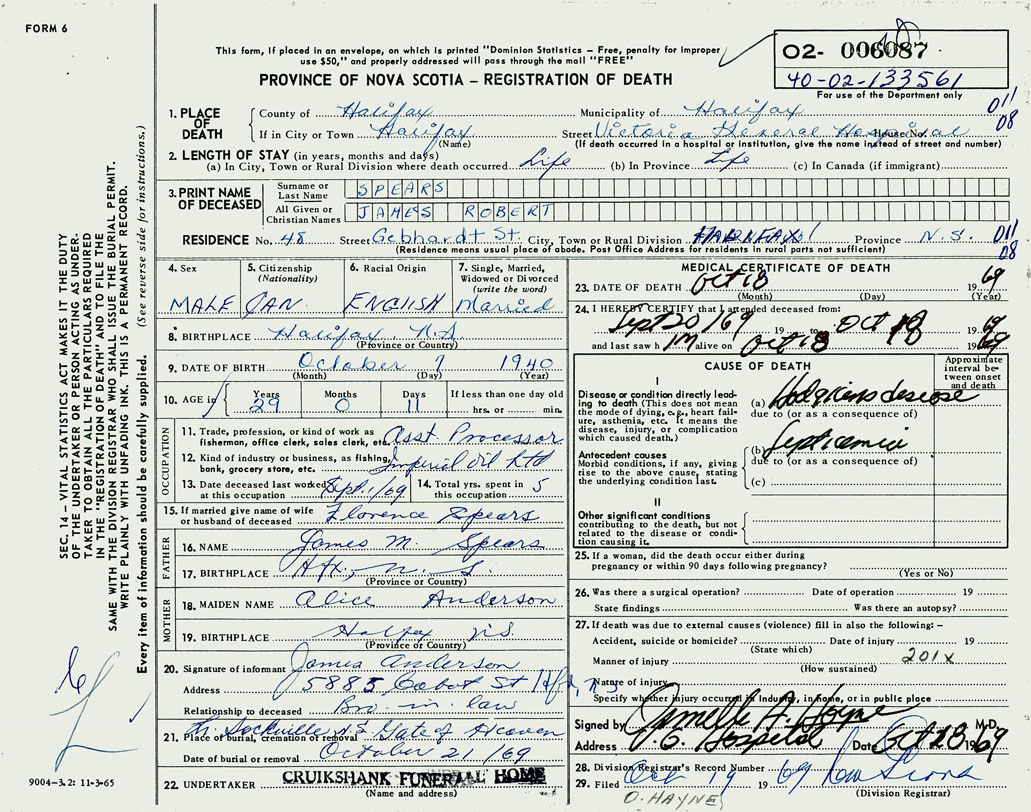 FORM 6
This form, if placed in an envelope, on which is printed "Dominion Statistics – Free, penalty for improper
use $50," and properly addressed will pass through the mail "FREE"
PROVINCE OF NOVA SCOTIA – REGISTRATION OF DEATH
02- 006087
40-02-133561
For use of the Department only
011
08
1. PLACE OF DEATH
County of Halifax Municipality of Halifax
If in City or Town Halifax Street Victoria General Hospital House No.
(Name) (If death occurred in a hospital or institution, give the name instead of street and number)
2. LENGTH OF STAY (in years, months and days)
(a) In City, Town or Rural Division where death occurred Life (b) In Province Life (c) In Canada (if immigrant)
3. PRINT NAME OF DECEASED
Surname or Last Name SPEARS
All Given or Christian Names JAMES ROBERT
RESIDENCE No. 48 Street Gebhardt St. City, Town or Rural Division Province N.S.
011
08
(Residence means usual place of abode. Post Office Address for residents in rural parts not sufficient)
4. Sex MALE
5. Citizenship (Nationality) CAN.
6. Racial Origin ENGLISH
7. Single, Married, Widowed or Divorced (write the word) Married
8. BIRTHPLACE Halifax N.S.
(Province or Country)
9. DATE OF BIRTH October 7 1940
(Month) (Day) (Year)
10. AGE in Years 29 Months 0 Days 11 If less than one day old hrs. or min.
OCCUPATION
11. Trade, profession, or kind of work as
fisherman, office clerk, sales clerk, etc. Asst Processor
12. Kind of industry or business, as fishing,
bank, grocery store, etc. Imperial Oil Ltd
13. Date deceased last worked at this occupation Sept. 1/69 14. Total yrs. spent in this occupation 5
15. If married give name of wife
or husband of deceased Florence Spears
FATHER
16. NAME James M. Spears
17. BIRTHPLACE Hfx, N.S.
(Province or Country)
MOTHER
18. MAIDEN NAME Alice Anderson
19. BIRTHPLACE Halifax N.S.
(Province or Country)
20. Signature of informant James Anderson
Address 5885 Cabot St Hfx, NS
Relationship to deceased Bro. in law
21. Place of burial, cremation or removal Sackville N.S. Gate of Heaven
Date of burial or removal October 21/69
22. UNDERTAKER CRUIKSHANK FUNERAL HOME
(Name and address)
MEDICAL CERTIFICATE OF DEATH
23. DATE OF DEATH Oct 18 1969
(Month) (Day) (Year)
24. I HEREBY CERTIFY that I attended deceased from:
Sept 20/69 19 to Oct 18 1969
and last saw him alive on Oct 18 1969
CAUSE OF DEATH
Approximate interval between onset and death
I
Disease or condition directly leading to death (This does not mean the mode of dying, e.g., heart failure, asthenia, etc. It means the disease, injury, or complication which caused death.)
(a) Hodgkins disease
due to (or as a consequence of)
Antecedent causes
Morbid conditions, if any, giving rise to the above cause, stating the underlying condition last.
(b) Septicemia
due to (or as a consequence of)
(c)
II
Other significant conditions
contributing to the death, but not related to the disease or condition causing it.
25. If a woman, did the death occur either during
pregnancy or within 90 days following pregnancy?
(Yes or No)
26. Was there a surgical operation? Date of operation 19
State findings Was there an autopsy?
27. If death was due to external causes (violence) fill in also the following: –
Accident, suicide or homicide? Date of injury 19
(State which)
Manner of injury 201x
(How sustained)
Nature of injury
Specify whether injury occurred in industry, in home, or in public place
Signed by M.D.
Address V.G. Hospital Date Oct 18 1969
28. Division Registrar's Record Number
29. Filed Oct 19 1969
(Division Registrar)
O. HAYNE
SEC. 14 – VITAL STATISTICS ACT MAKES IT THE DUTY
OF THE UNDERTAKER OR PERSON ACTING AS UNDER-
TAKER TO OBTAIN ALL THE PARTICULARS REQUIRED
IN THE "REGISTRATION OF DEATH" AND TO FILE THE
SAME WITH THE DIVISION REGISTRAR WHO SHALL ISSUE THE BURIAL PERMIT.
WRITE PLAINLY WITH UNFADING INK. THIS IS A PERMANENT RECORD.
Every item of information should be carefully supplied. (See reverse side for instructions.)
9004-3.2: 11-3-65